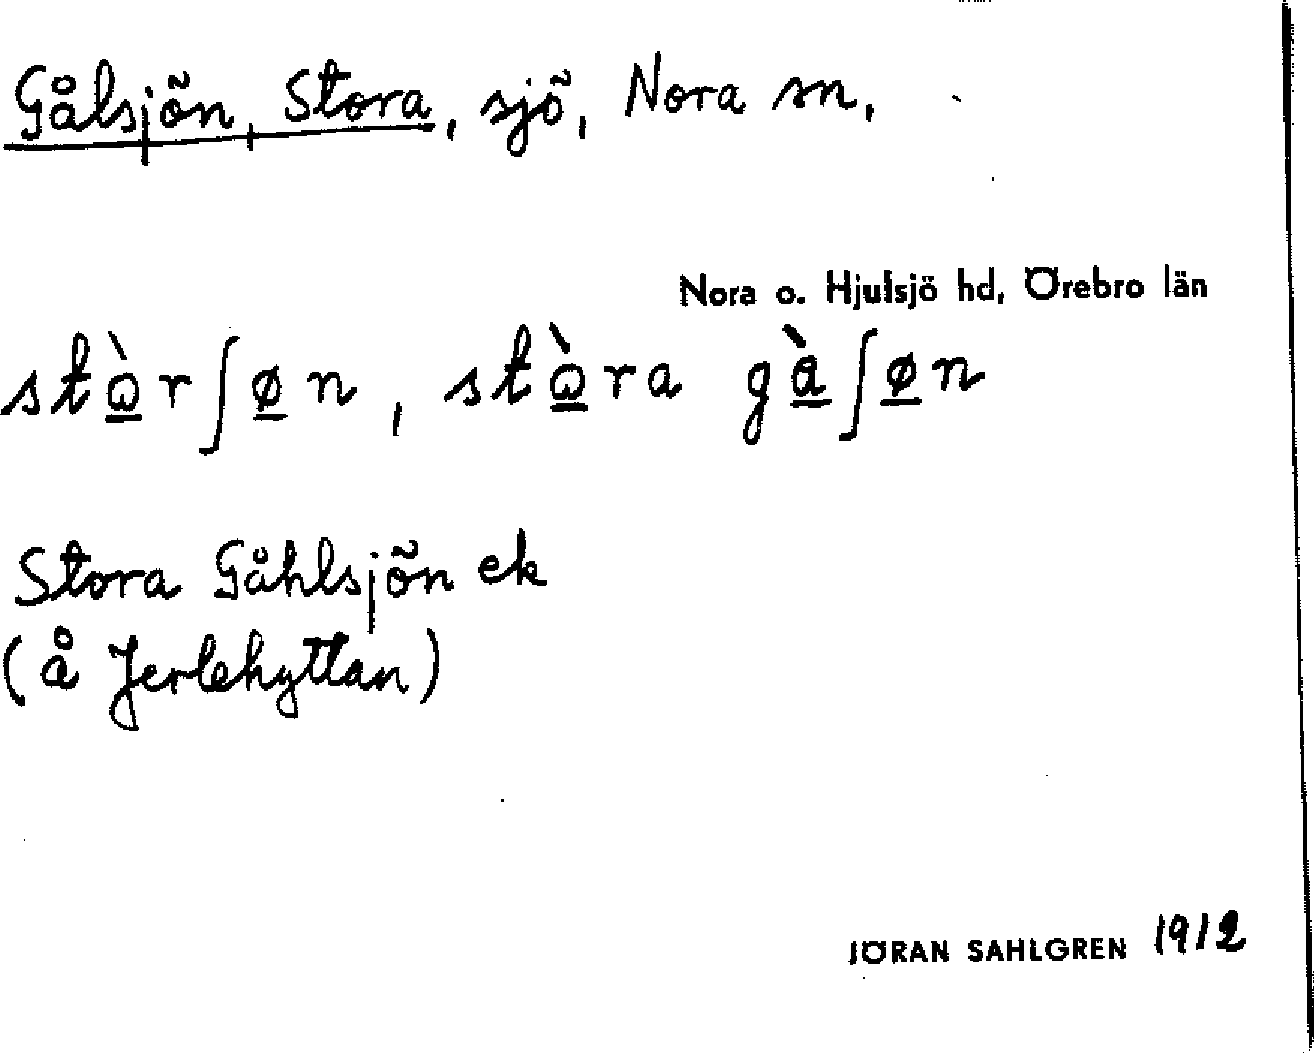 Gålsjön, Stora, sjö, Nora sn,
Nora o. Hjulsjö hd, Örebro län
stὼ̱rʃø̱n, stὼ̱ra gà̱ʃø̱n
Stora Gåhlsjön ek
(å Jerlehyttan)
JÖRAN SAHLGREN 1912